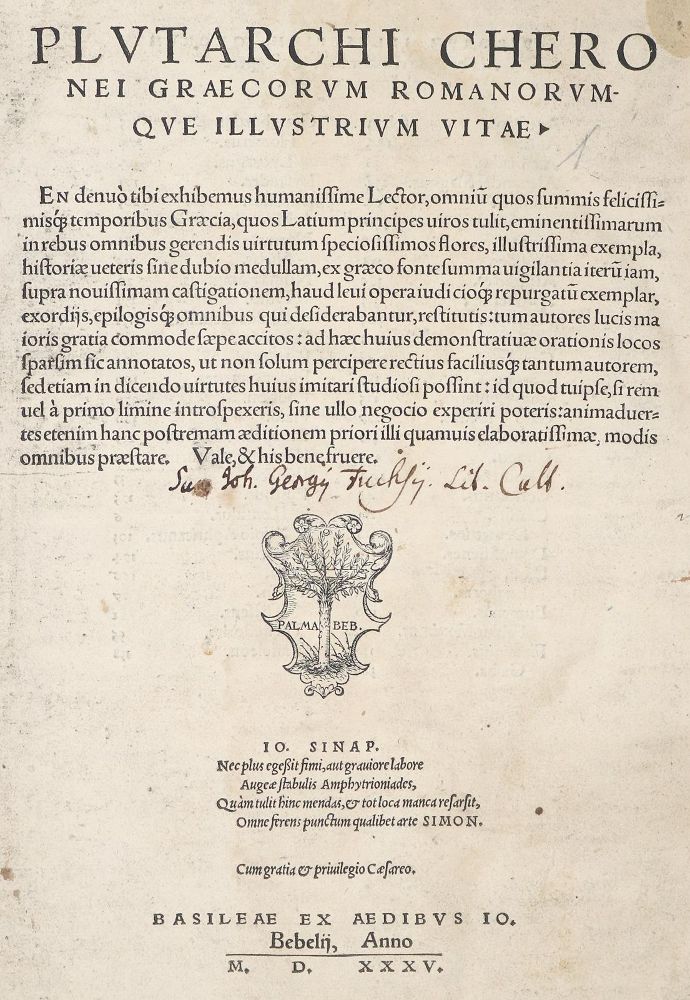 PLVTARCHI CHERO
NEI GRAECORVM ROMANORVM-
QVE ILLVSTRIVM VITAE
1
EN denuò tibi exhibemus humanissime Lector, omniũ quos summis felicissi=
misq́ꝫ temporibus Græcia, quos Latium principes uiros tulit, eminentissimarum
in rebus omnibus gerendis uirtutum speciosissimos flores, illustrissima exempla,
historiæ ueteris sine dubio medullam, ex græco fonte summa uigilantia iterũ iam,
supra nouissimam castigationem, haud leui opera iudicioq́ꝫ repurgatũ exemplar,
exordijs, epilogisq́ꝫ omnibus qui desiderabantur, restitutis: tum autores lucis ma
ioris gratia commode sæpe accitos: ad hæc huius demonstratiuæ orationis locos
sparsim sic annotatos, ut non solum percipere rectius faciliusq́ꝫ tantum autorem,
sed etiam in dicendo uirtutes huius imitari studiosi possint: id quod tuipse, si rem
uel à primo limine introspexeris, sine ullo negocio experiri poteris: animaduer-
tes etenim hanc postremam æditionem priori illi quamuis elaboratissimæ, modis
omnibus præstare. Vale, & his bene fruere.
Sum Joh. Georgij Fuchsij. Lit. Cult.
PALMA BEB.
IO. SINAP.
Nec plus egeßit fimi, aut grauiore labore
Augeæ stabulis Amphytrioniades,
Quàm tulit hinc mendas, & tot loca manca resarsit,
Omne ferens punctum qualibet arte SIMON.
Cum gratia & priuilegio Cæsareo.
BASILEAE EX AEDIBVS IO.
Bebelij, Anno
M. D. XXXV.